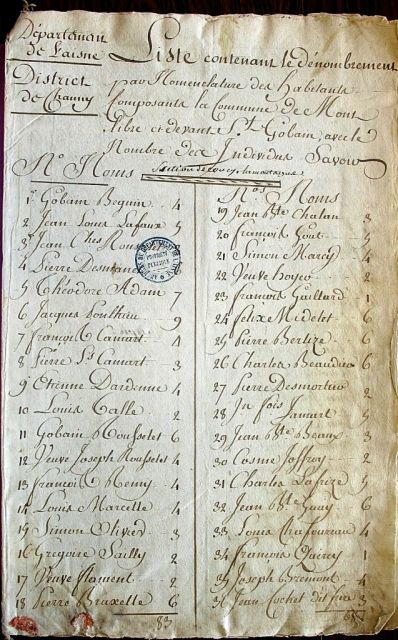 Département
de Laisne
District
de Chauny
Liste contenant le dénombrement
par Nomenclature des habitants
Composants la Commune de Mont
libre cydevant St. Gobain, avec le
Nombre des Individus Savoir
Section de
No. Noms
1 Gobain Beguin 4
2 Jean Louis Lafaux 5
3 Jean Chles
4 Pierre
5 Theodore Adam 7
6 Jacques 9
7 François Camart 4
8 Pierre St Camart 3
9 Etienne Dardenne 4
10 Louis 2
11 Gobain Rousselet 6
12 Veuve Joseph Rousselet 4
13 François Remy 4
14 Louis Marcelle 4
15 Simon 3
16 Gregoire Sailly 2
17 Veuve flament 2
18 Pierre Bruxelle 6
83
Nos. Noms
19 Jean Bte Chalan 3
20 François Gout
21 Simon Marcy 4
22 Veuve 2
23 François Gaillard 1
24 felix Midelet 6
25 Pierre Berlize 6
26 Charles Beaudieu 6
27 Pierre Desmortier 2
28 Jn fois
29 Jean Bte Beaux 3
30 Cosme Joffroy 2
31 Charles
32 Jean Bte 6
33 Louis 4
34 françois 1
35 Joseph Bremont 4
36 Jean Cochet dit 3